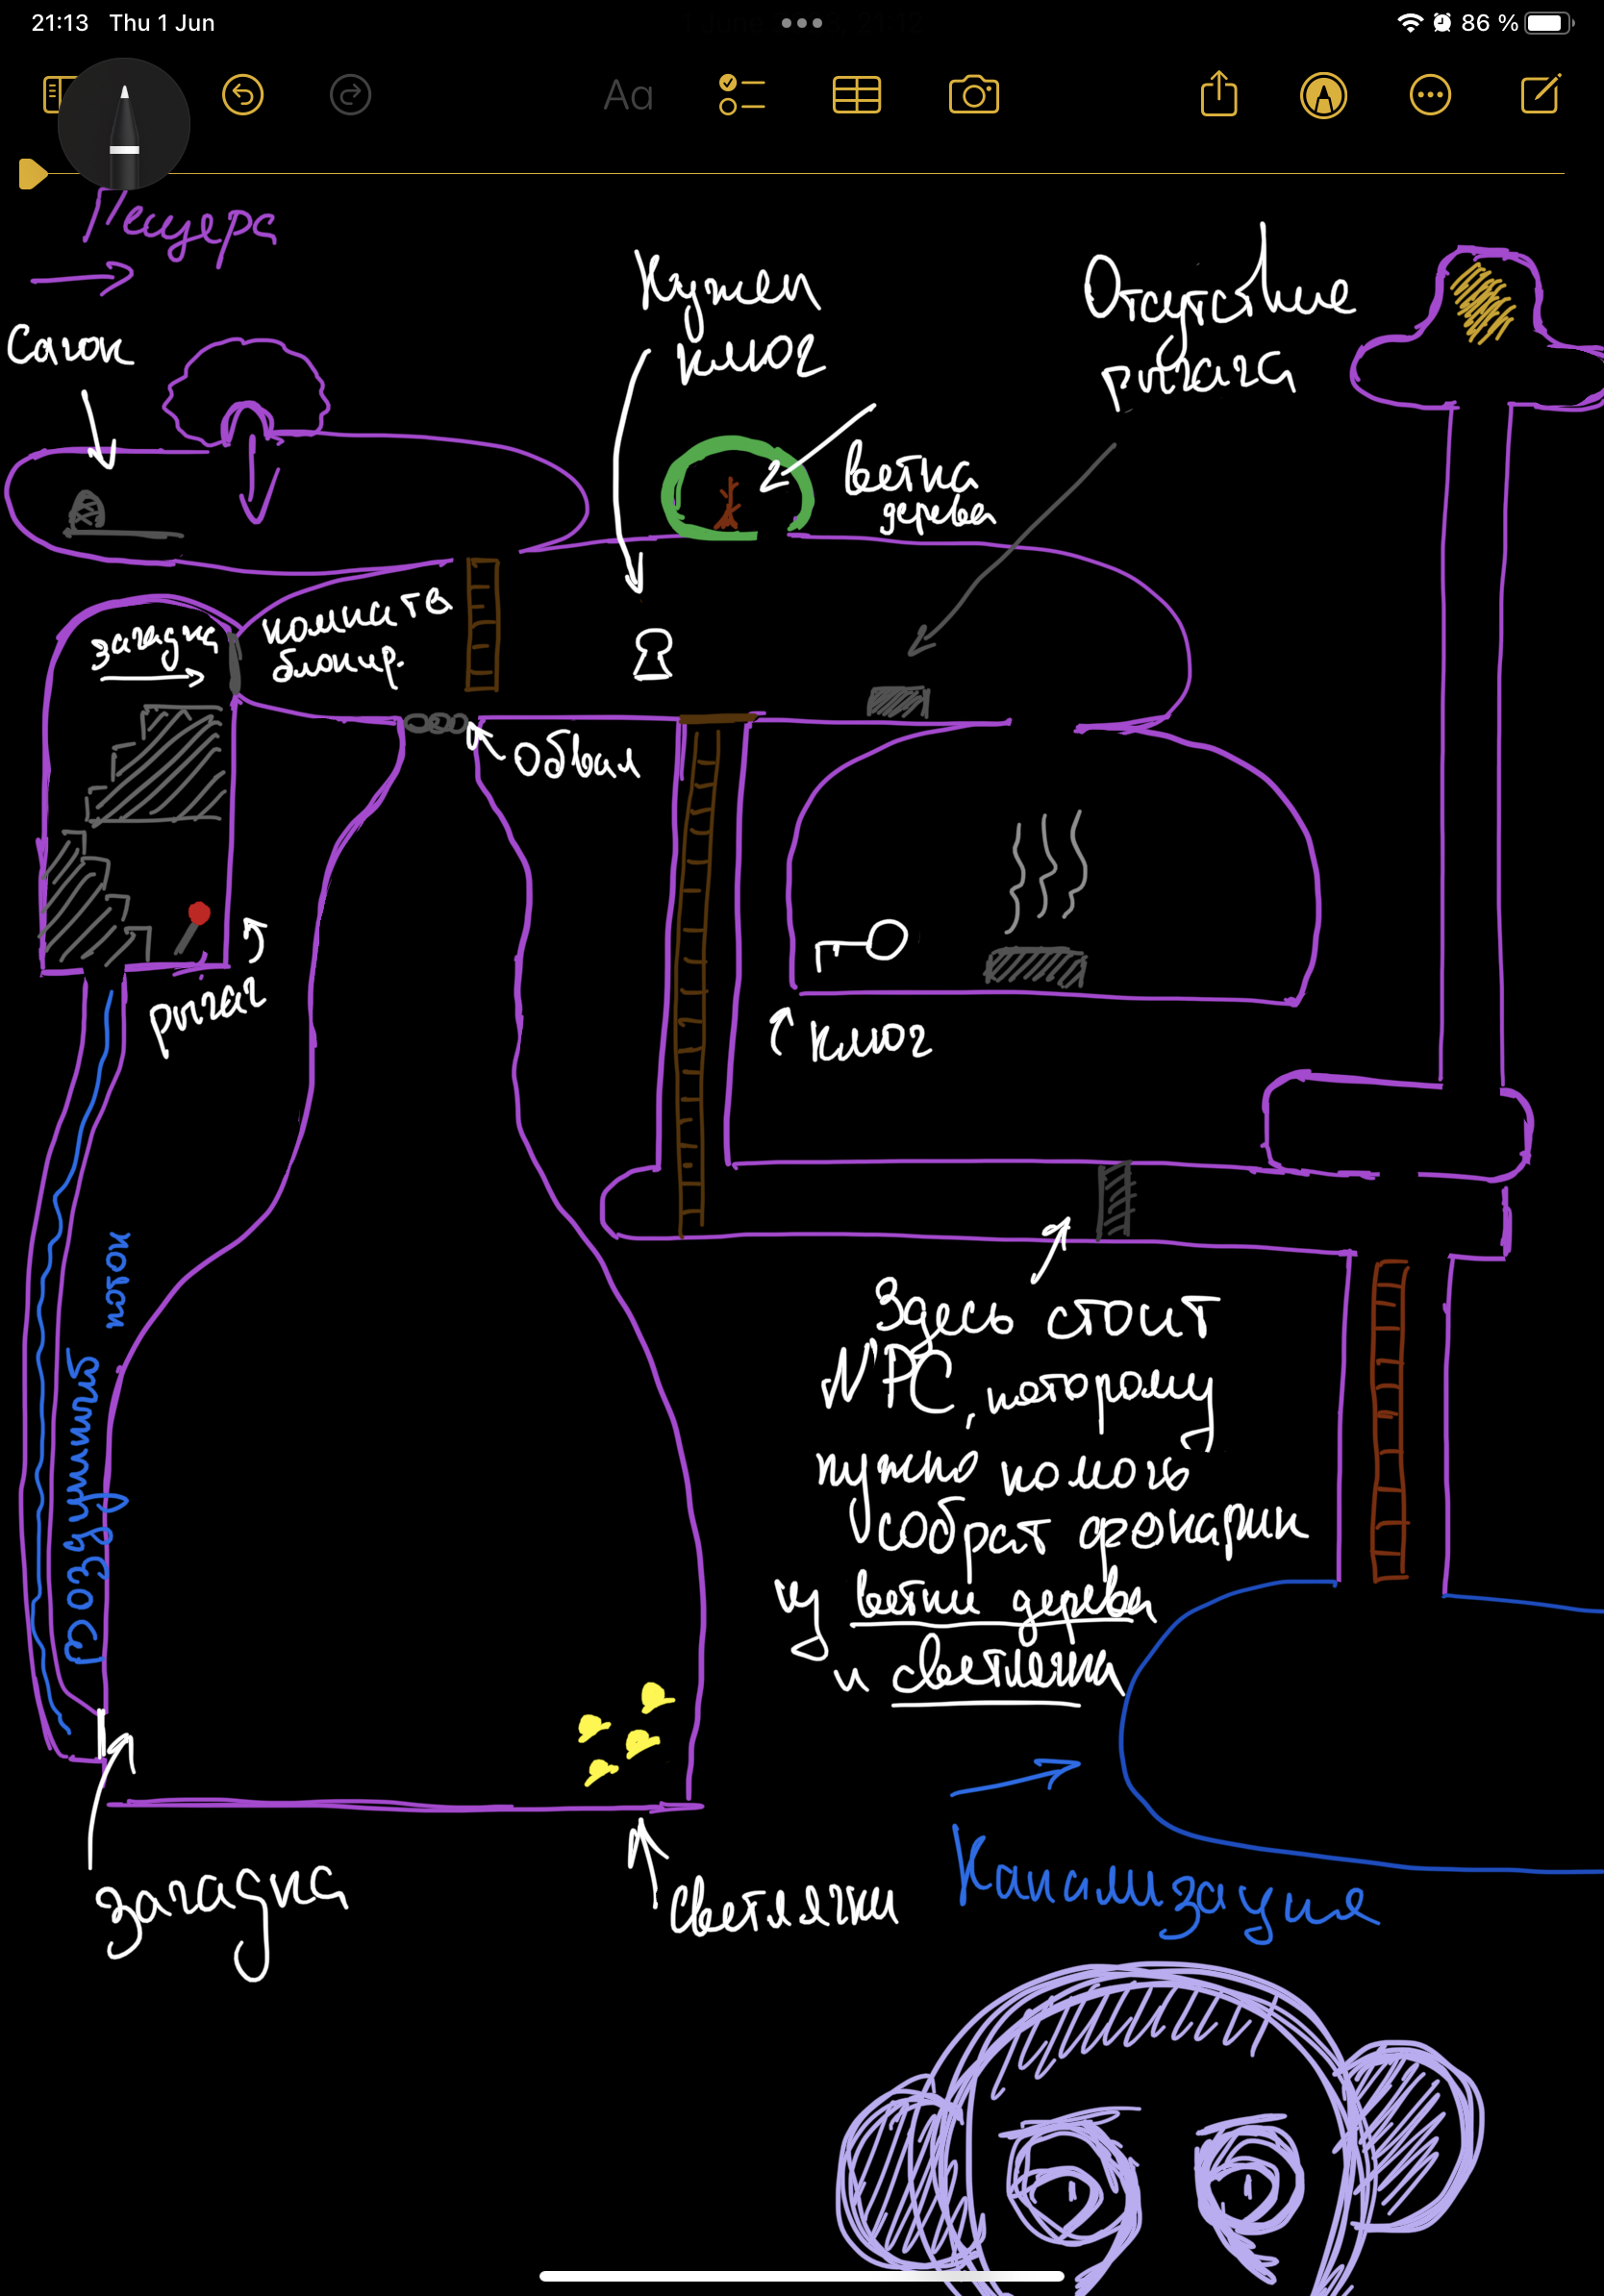 21:13 Thu 1 Jun
86 %
Aa
Пещера
Сачок
Нужен
ключ
Отсутствие
рычага
ветка
дерева
загадка
комната
блокир.
Обвал
рычаг
ключ
Воздушный поток
Здесь стоит
NPC, которому
нужно помочь
собрат фонарик
из ветки дерева
и светлячка
загадка
Светлячки
Канализация